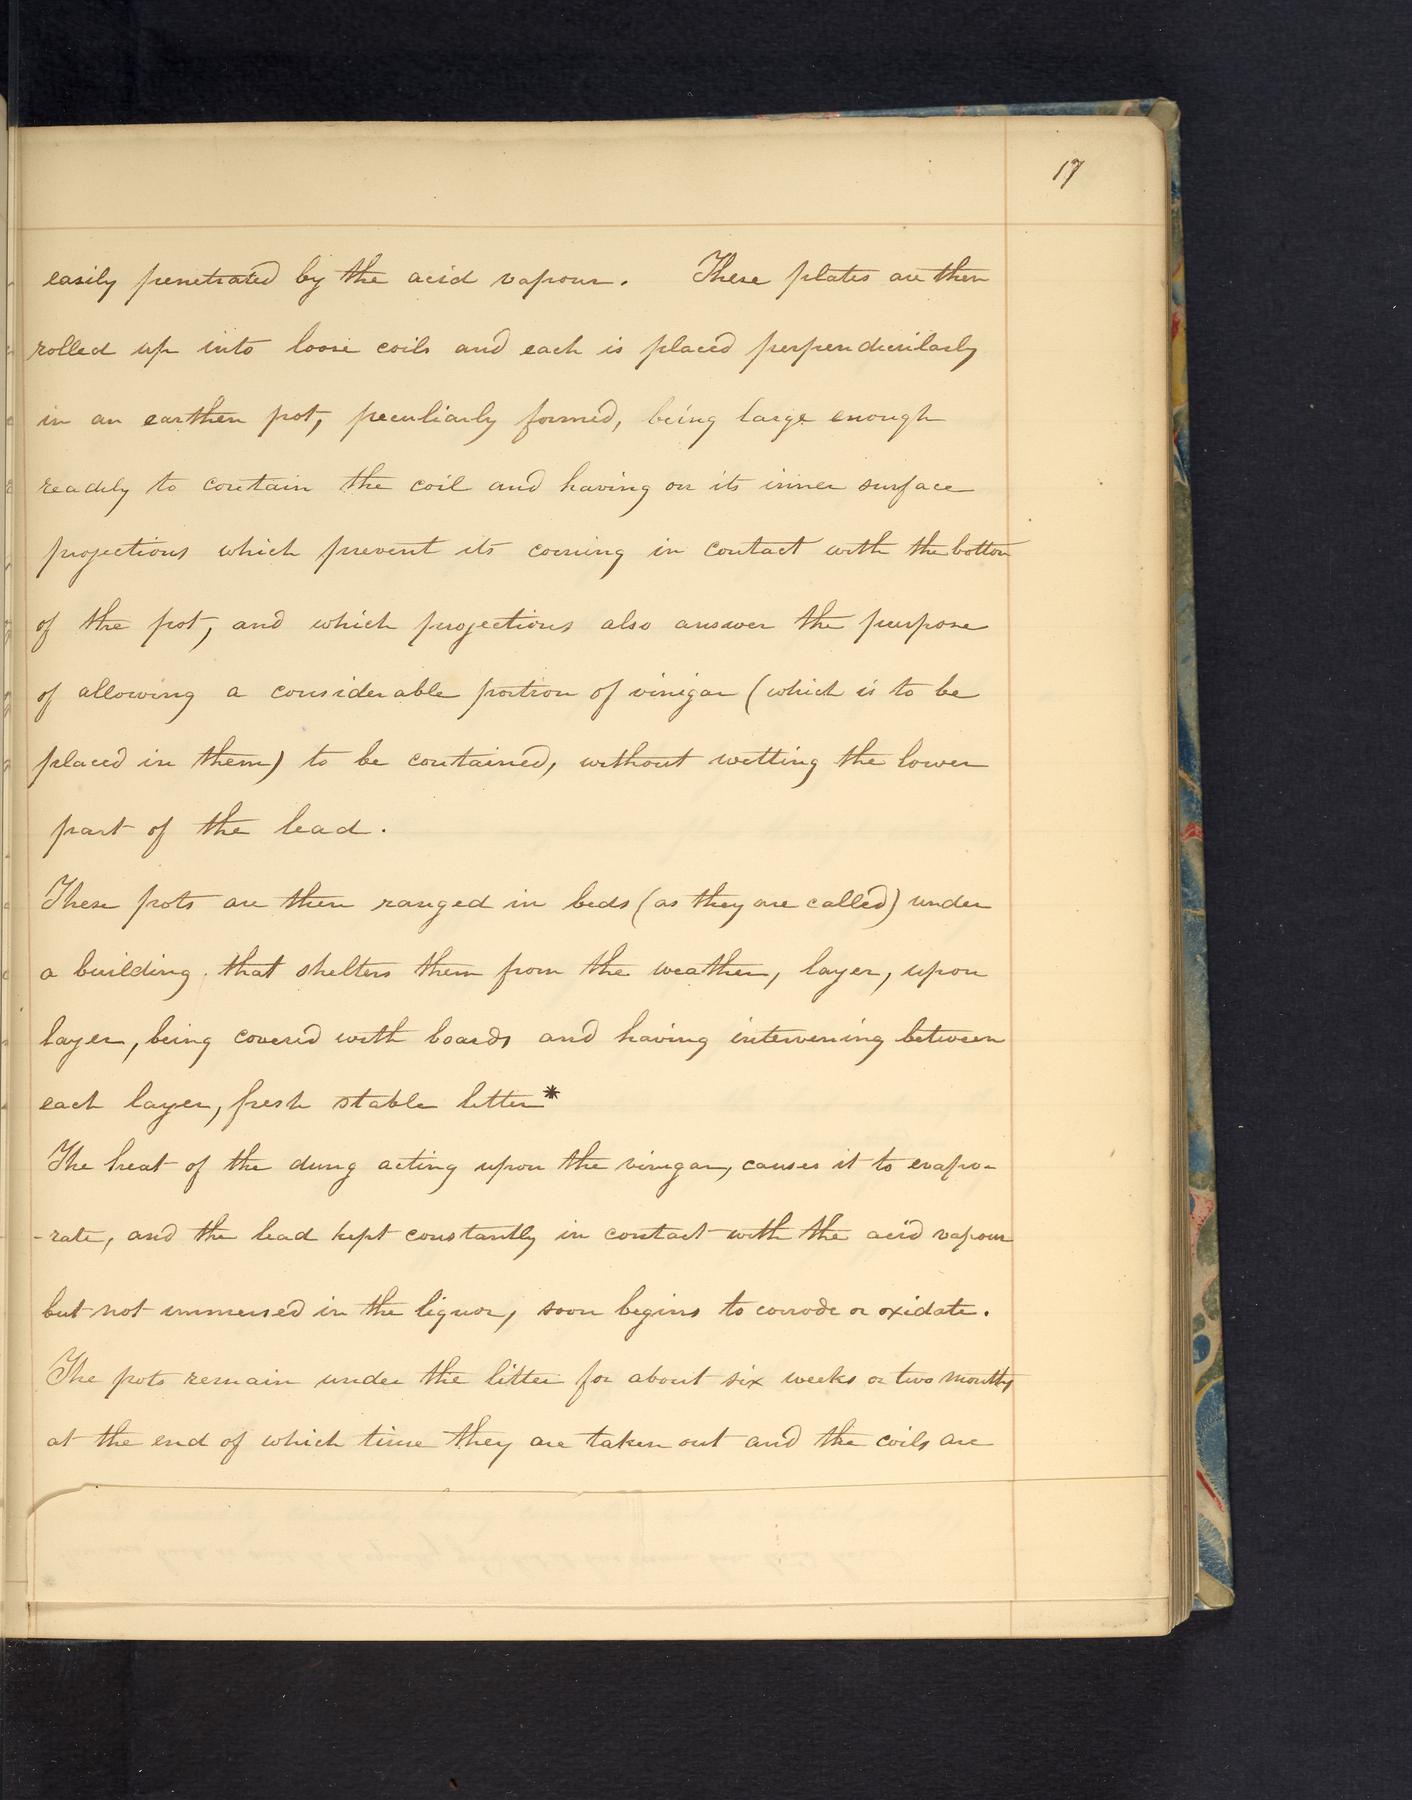 17
easily penetrated by the acid vapour. These plates are then
rolled up into loose coils and each is placed perpendicularly
in an earthen pot, peculiarly formed, being large enough
readily to contain the coil and having on its inner surface
projections which prevent its coming in contact with the bottom
of the pot, and which projections also answer the purpose
of allowing a considerable portion of vinigar (which is to be
placed in them) to be contained, without wetting the lower
part of the lead.
These pots are then ranged in beds (as they are called) under
a building that shelters them from the weather, layer, upon
layer, being covered with boards and having intervening between
each layer, fresh stable litter*
The heat of the dung acting upon the vinegar, causes it to evapo-
-rate, and the lead kept constantly in contact with the acid vapour
but not immersed in the liquor, soon begins to corrode or oxidate.
The pots remain under the litter for about six weeks or two months
at the end of which time they are taken out and the coils are